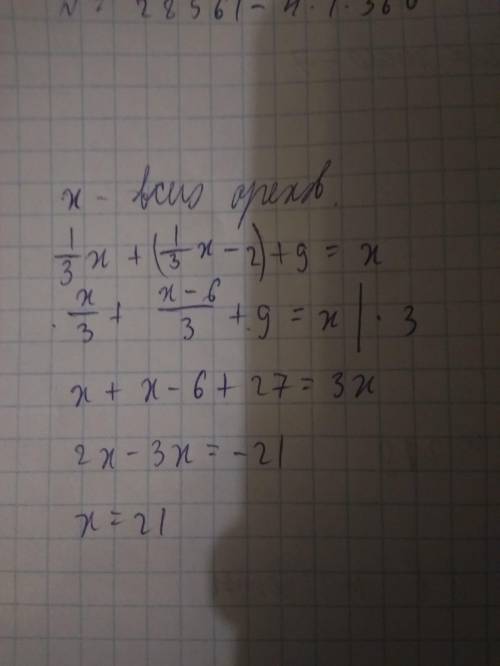 x - всего орехов.
1/3 x + (1/3 x - 2) + 9 = x
x/3 + (x - 6)/3 + 9 = x | · 3
x + x - 6 + 27 = 3x
2x - 3x = -21
x = 21